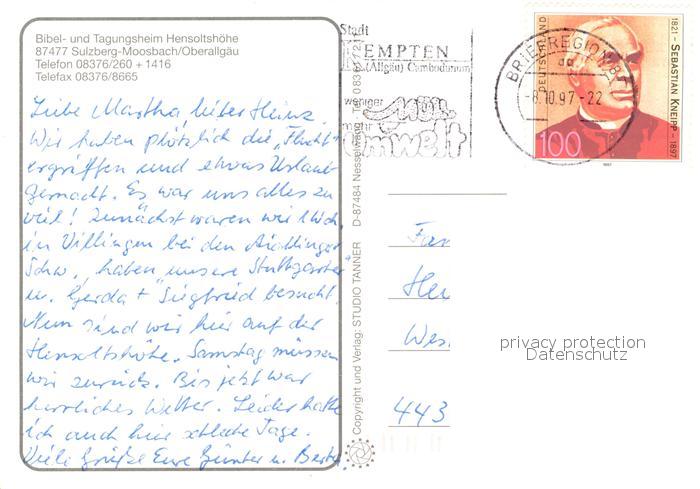 Bibel- und Tagungsheim Hensoltshöhe
87477 Sulzberg-Moosbach/Oberallgäu
Telefon 08376/260 + 1416
Telefax 08376/8665
Liebe Martha, lieber Heinz,
Wir haben plötzlich die „Flucht"
ergriffen und etwas Urlaub
gemacht. Es war uns alles zu
viel! Zunächst waren wir 1 Wch.
in Villingen bei den Aidlinger
Schw., haben unsere Stuttgarter
u. Gerda + Siegfried besucht.
Nun sind wir hier auf der
Hensoltshöhe. Samstag müssen
wir zurück. Bis jetzt war
herrliches Wetter. Leider hatte
ich auch hier schlechte Tage.
Viele Grüße Eure Günter u.
Copyright und Verlag: STUDIO TANNER D-87484 Nesselwang
Stadt
KEMPTEN
(Allgäu) Cambodunum
weniger
Müll
mehr
Umwelt
BRIEFREGION 87
da
-8.10.97-22
DEUTSCHLAND
100
1821 - SEBASTIAN KNEIPP - 1897
1997
Fam
Her
Wes
443
privacy protection
Datenschutz